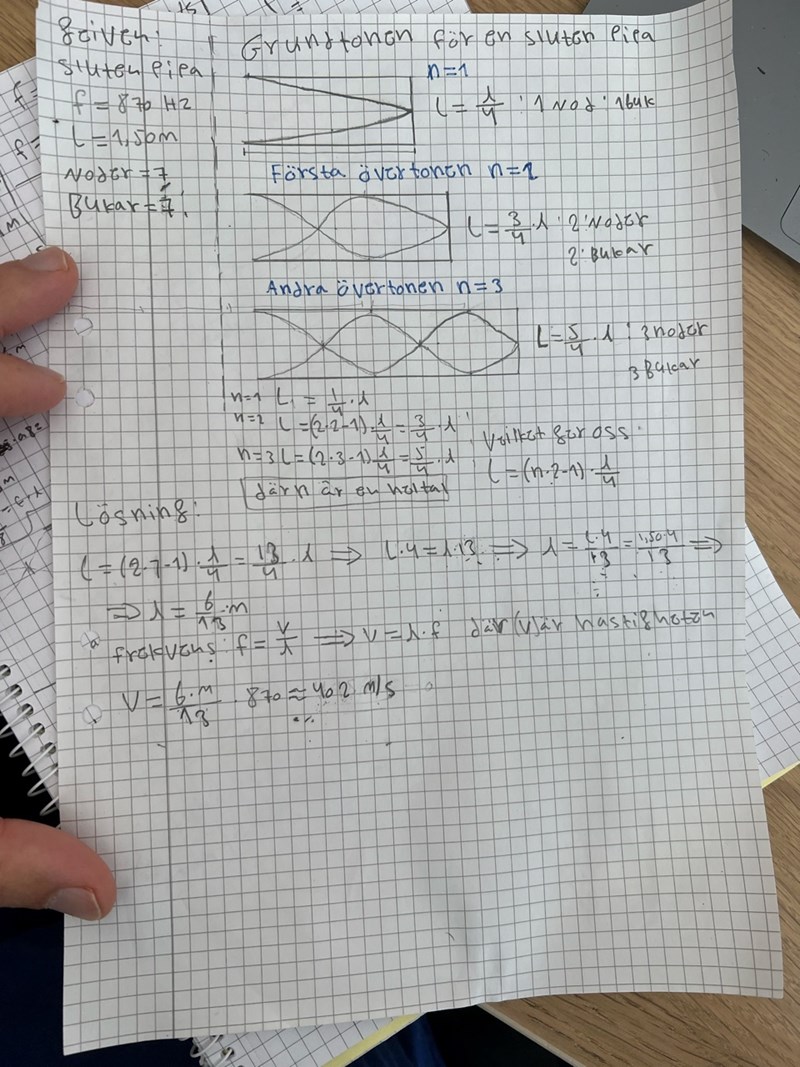 Geiven:
Sluten Pipa
f = 870 Hz
L = 1,50m
Noder = 7
Bukar = 7
Grundtonen för en sluten Pipa
n=1
L = λ/4 : 1 Nod : 1buk
Första övertonen n=2
L = 3/4 · λ : 2 Noder
2 Bukar
Andra övertonen n=3
L = 5/4 · λ : 3 noder
3 Bukar
n=1 L = 1/4 · λ
n=2 L = (2·2-1) · λ/4 = 3/4 · λ
n=3 L = (2·3-1) λ/4 = 5/4 · λ
där n är en heltal
Vilket ger oss
L = (n·2-1) · λ/4
Lösning:
L = (2·7-1) · λ/4 = 13/4 · λ ⟹ L·4 = λ·13 ⟹ λ = L·4/13 = 1,50·4/13 ⟹
⟹ λ = 6/13 · m
frekvens: f = v/λ ⟹ v = λ·f där (v) är hastigheten
V = 6·m/13 · 870 ≈ 402 m/s